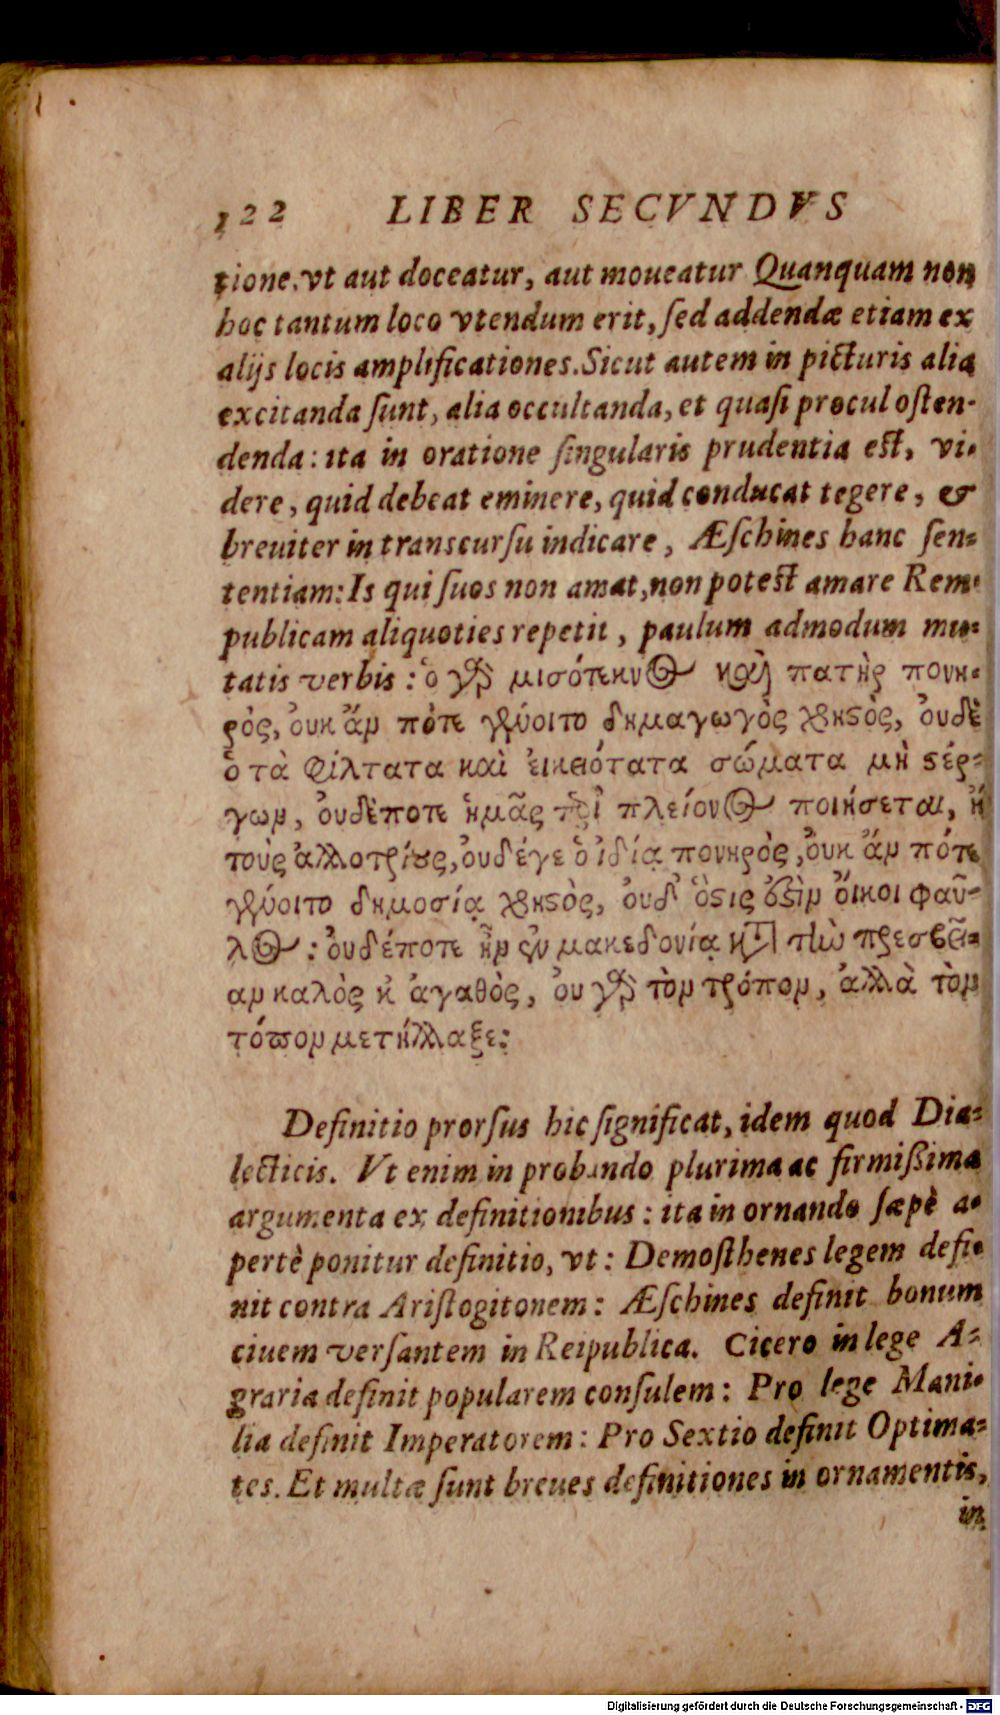 122 LIBER SECVNDVS
tione. vt aut doceatur, aut moueatur Quanquam non
hoc tantum loco vtendum erit, sed addendæ etiam ex
alijs locis amplificationes. Sicut autem in picturis alia
excitanda sunt, alia occultanda, et quasi procul osten-
denda: ita in oratione singularis prudentia est, vi-
dere, quid debeat eminere, quid conducat tegere, &
breuiter in transcursu indicare, Æschines hanc sen-
tentiam: Is qui suos non amat, non potest amare Rem-
publicam aliquoties repetit, paulum admodum mu-
tatis verbis: ὁ γὰρ μισότεκνος καὶ πατὴρ πονη-
ρὸς, ὀυκ ἄν πότε γένοιτο δημαγωγὸς χρηστὸς, ὀυδὲ
ὁ τὰ φίλτατα καὶ ἐικειότατα σώματα μὴ στέρ-
γων, ὀυδέποτε ἡμᾶς περὶ πλείονος ποιήσεται, ἢ
τοὺς ἀλλοτρίους, ὀυδέγε ὁ ἰδίᾳ πονηρὸς, ὀυκ ἄν πότε
γένοιτο δημοσίᾳ χρηστὸς, ὀυδ' ὅστις ἐστὶν ὄικοι φαῦ-
λος: ὀυδέποτε ἦν ἐν μακεδονίᾳ κατὰ τὴν πρεσβεῖ-
αν καλὸς κ ἀγαθὸς, ὀυ γὰρ τὸν τρόπον, ἀλλὰ τὸν
τόπον μετήλλαξε:
Definitio prorsus hic significat, idem quod Dia-
lecticis. Vt enim in probando plurima ac firmißima
argumenta ex definitionibus: ita in ornando sæpè a-
pertè ponitur definitio, vt: Demosthenes legem defi-
nit contra Aristogitonem: Æschines definit bonum
ciuem versantem in Reipublica. Cicero in lege A-
graria definit popularem consulem: Pro lege Mani-
lia definit Imperatorem: Pro Sextio definit Optima-
tes. Et multæ sunt breues definitiones in ornamentis,
in
Digitalisierung gefördert durch die Deutsche Forschungsgemeinschaft - DFG